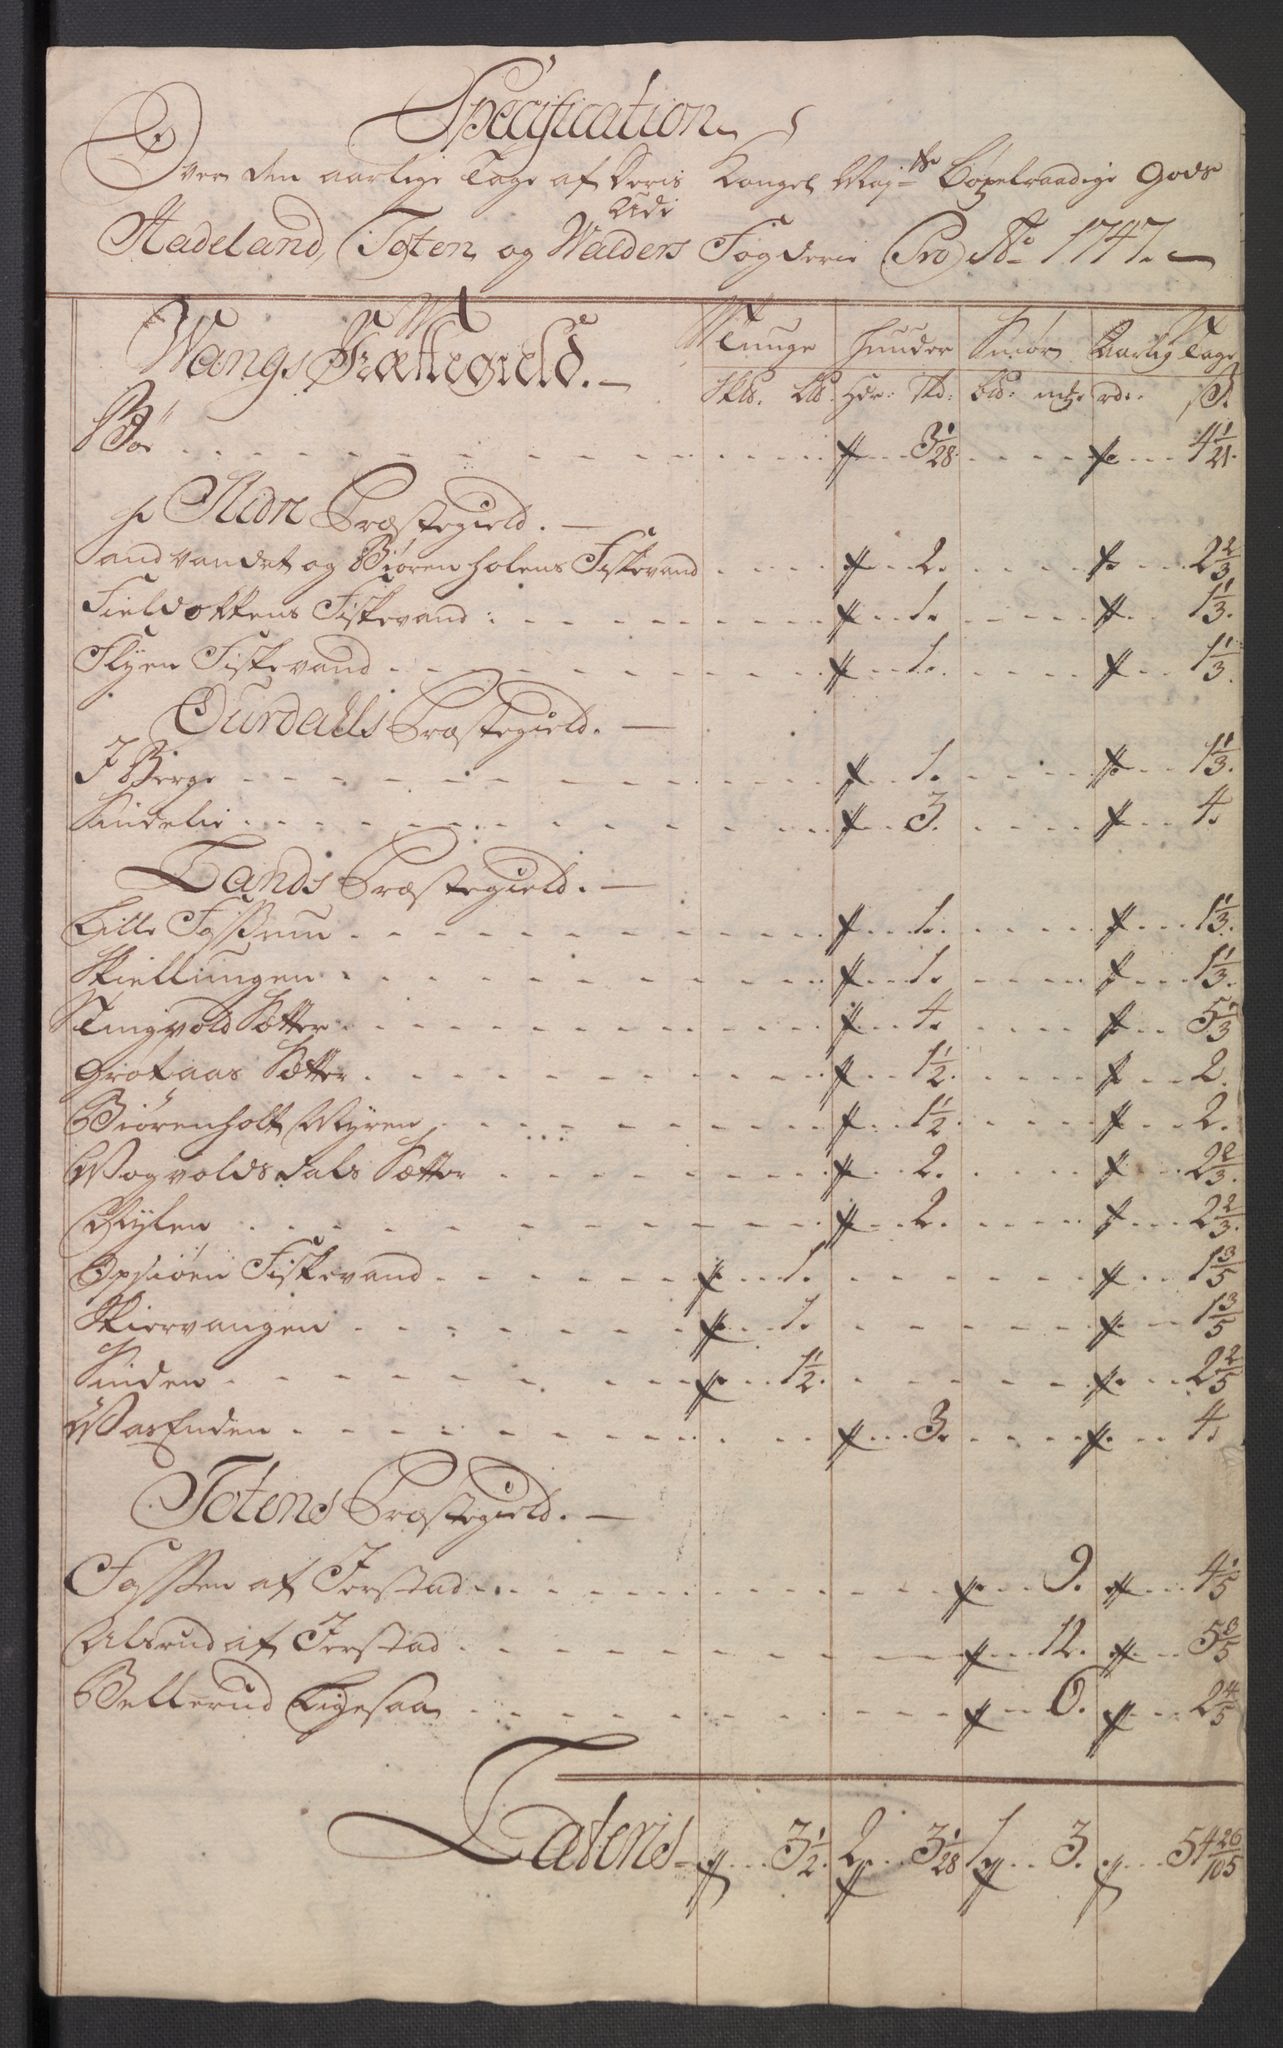 Specification
Over den aarlige Tage af Deris Kongel Maj:ts Böxelraadige Gods
Udi
Hadeland, Toten og Walders Fogderie Pro Ao 1747.
Wangs Præstegield. Tunge Hunder Smör Aarlig Tage
Skl. Lb. Hdr: Skd: bd: mk rdr. s.
Böe . . . „ . . 3 1/28 . . . „ . . 4 1/21.
Slidre Præstegield.
Sandvandet og Biörenholens Fiskevand . . . „ . . 2. . . . „ . . 2 2/3
Fieldokkens Fiskevand : . . . „ . . 1. . . . „ . . 1 1/3.
Flyen Fiskevand . . . „ . . 1. . . . „ . . 1 1/3.
Ourdalls Præstegield.
J Berge . . . „ . . 1. . . . „ . . 1 1/3.
Sindelie . . . „ . . 3. . . . „ . . 4.
Lands Præstegield.
Lille Fosserun . . . „ . . 1. . . . „ . . 1 1/3.
Skiellungen . . . „ . . 1. . . . „ . . 1 1/3.
Tingvold Sætter . . . „ . . 4. . . . „ . . 5 1/3
Grotaas Sætter . . . „ . . 1 1/2. . . . „ . . 2.
Biörenholt Myren . . . „ . . 1 1/2. . . . „ . . 2.
Mogvoldsdals Sætter . . . „ . . 2. . . . „ . . 2 2/3.
Mylen . . . „ . . 2. . . . „ . . 2 2/3.
Opsiöen Fiskevand . . . „ . . 1. . . . „ . . 1 3/5
Skiervangen . . . „ . . 1. . . . „ . . 1 3/5
Sinden . . . „ . . 1 1/2. . . . „ . . 2 2/5
WasEnden . . . „ . . 3. . . . „ . . 4.
Totens Præstegield.
Fossen af Jerstad . . . „ . . 9. „ . . 4 1/5
Alsrud af Jerstad . . . „ . . 12. „ . . 5 3/5
Bellerud Ligesaa . . . „ . . 6. „ . . 2 4/5
Lateris „ . . 3 1/2. 2 „ . . 3 1/28 1 „ . . 3. „ . . 54 26/105